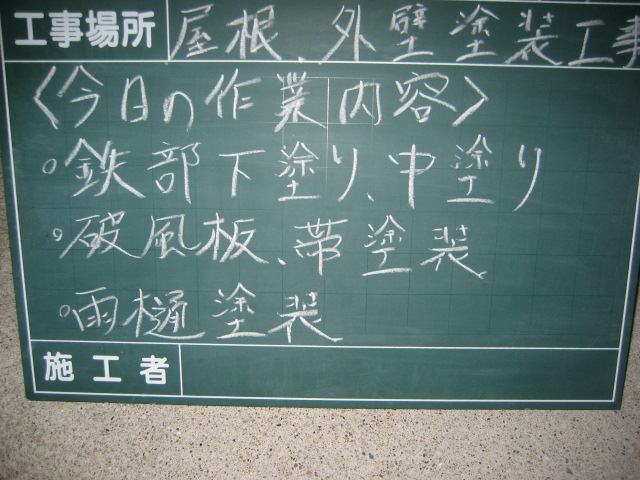 工事場所 屋根、外壁塗装工事
〈今日の作業内容〉
◦鉄部下塗り、中塗り
◦破風板、帯塗装
◦雨樋塗装
施工者